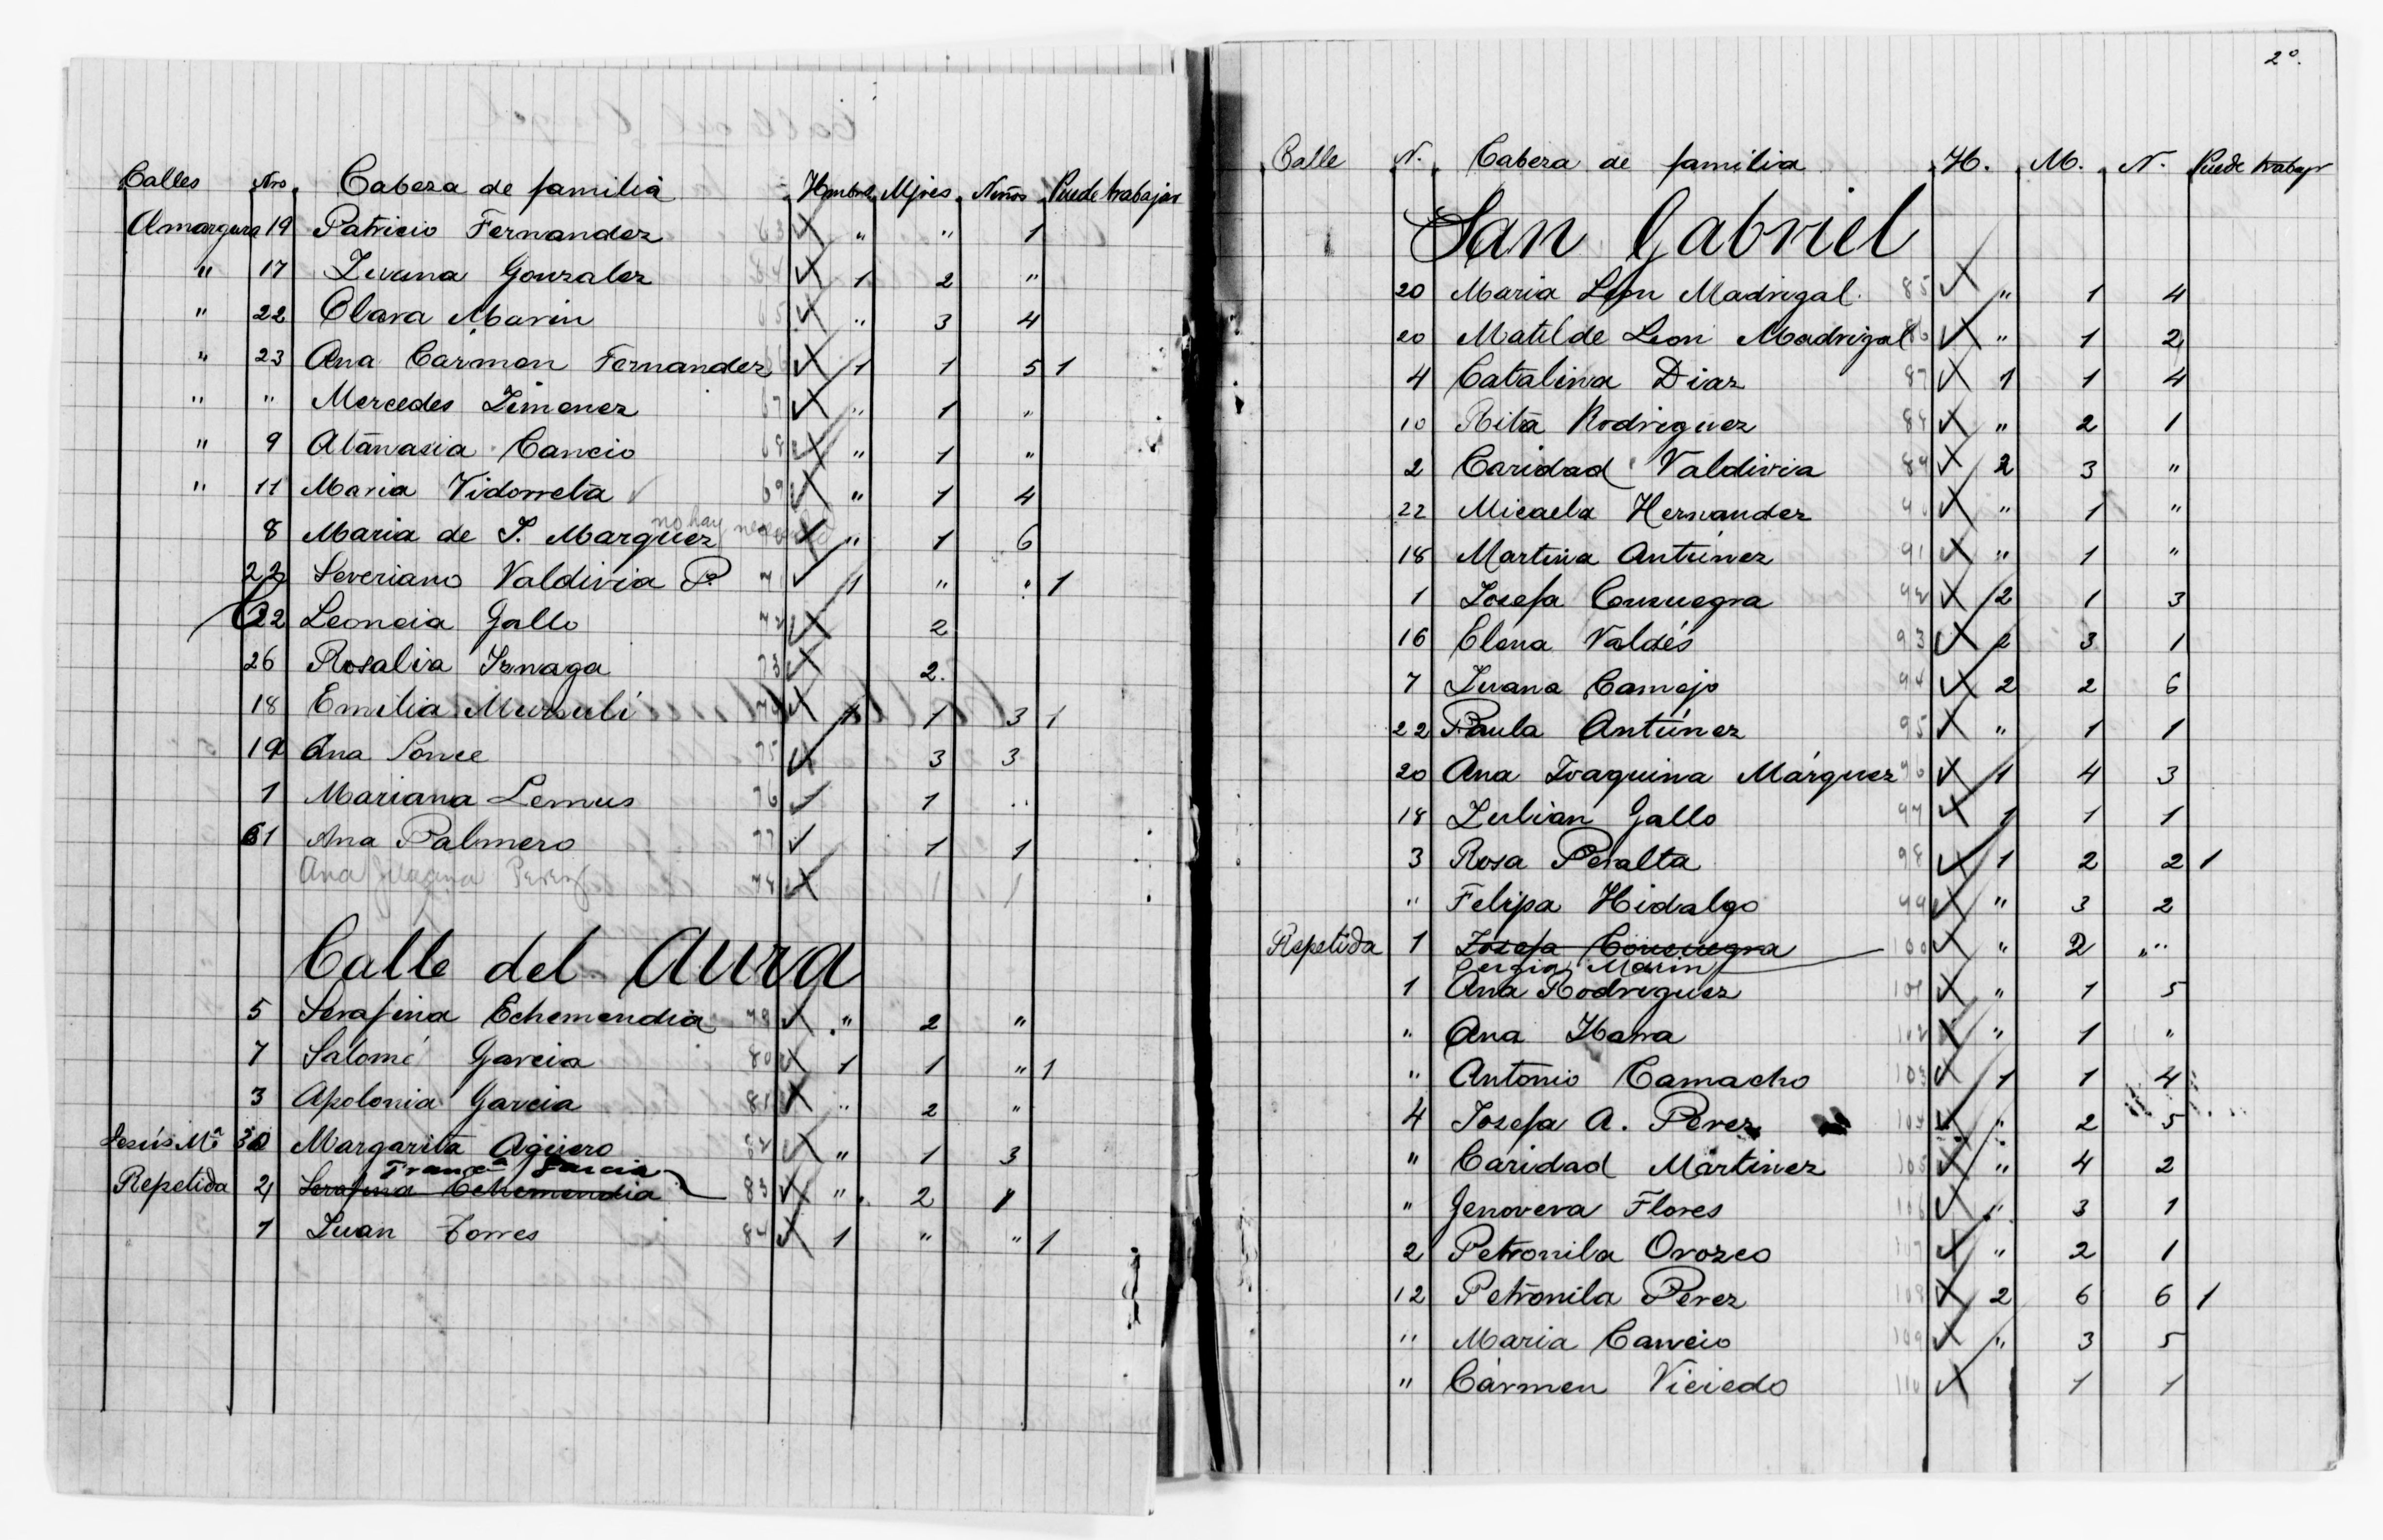 Calles Nro. Cabeza de familia Hombres Mjres Niños Puede trabajar
Amargura 19 Patricio Fernandez 63 " " 1
" 17 Juana Gonzalez 64 1 2 "
" 22 Clara Marin 65 " 3 4
" 23 Ana Carmen Fernandez 66 1 1 5 1
" " Mercedes Jimenez 67 " 1 "
" 9 Atanasia Cancio 68 " 1 "
" 11 Maria Vidorreta 69 " 1 4
no hay
8 Maria de J. Marquez " 1 6
22 Severiano Valdivia P. 71 1 " " 1
22 Leoncia Gallo 72 2
26 Rosalia Iznaga 73 2.
18 Emilia Mursuli 74 1 1 3 1
19 Ana Ponce 75 3 3
1 Mariana Lemus 76 1 "
61 Ana Palmero 77 1 1
Ana Juana Perez 78 1 1
Calle del Aura
5 Serafina Echemendia 79 " 2 "
7 Salomé Garcia 80 1 1 " 1
3 Apolonia Garcia 81 " 2 "
Jesús Mª 30 Margarita Agüero 82 " 1 3
Francª Garcia
Repetida 21 Serafina Echemendia 83 " 2 1
1 Juan Torres 84 1 " " 1
2º.
Calle N. Cabeza de familia H. M. N. Puede trabajr
San Gabriel
20 Maria Leon Madrigal. 85 " 1 4
20 Matilde Leon Madrigal 86 " 1 2
4 Catalina Diaz 87 1 1 4
10 Rita Rodriguez 88 " 2 1
2 Caridad Valdivia 89 2 3 "
22 Micaela Hernandez " 1 "
18 Martina Antúnez 91 " 1 "
1 Josefa Consuegra 92 2 1 3
16 Elena Valdés 93 2 3 1
7 Juana Camejo 94 2 2 6
22 Paula Antúnez 95 " 1 1
20 Ana Joaquina Márquez 96 1 4 3
18 Julian Gallo 97 1 1 1
3 Rosa Peralta 98 1 2 2 1
" Felipa Hidalgo 99 " 3 2
Repetida 1 Josefa Consuegra 100 " 2 "
Sergia Marin
1 Ana Rodriguez 101 " 1 5
" Ana Ibarra 102 " 1 "
" Antonio Camacho 103 1 1 4
4 Josefa A. Perez 104 " 2 5
" Caridad Martinez 105 " 4 2
" Jenoveva Flores 106 " 3 1
2 Petronila Orozco 107 " 2 1
12 Petronila Perez 108 2 6 6 1
" Maria Cancio 109 " 3 5
" Cármen Viciedo 110 1 1